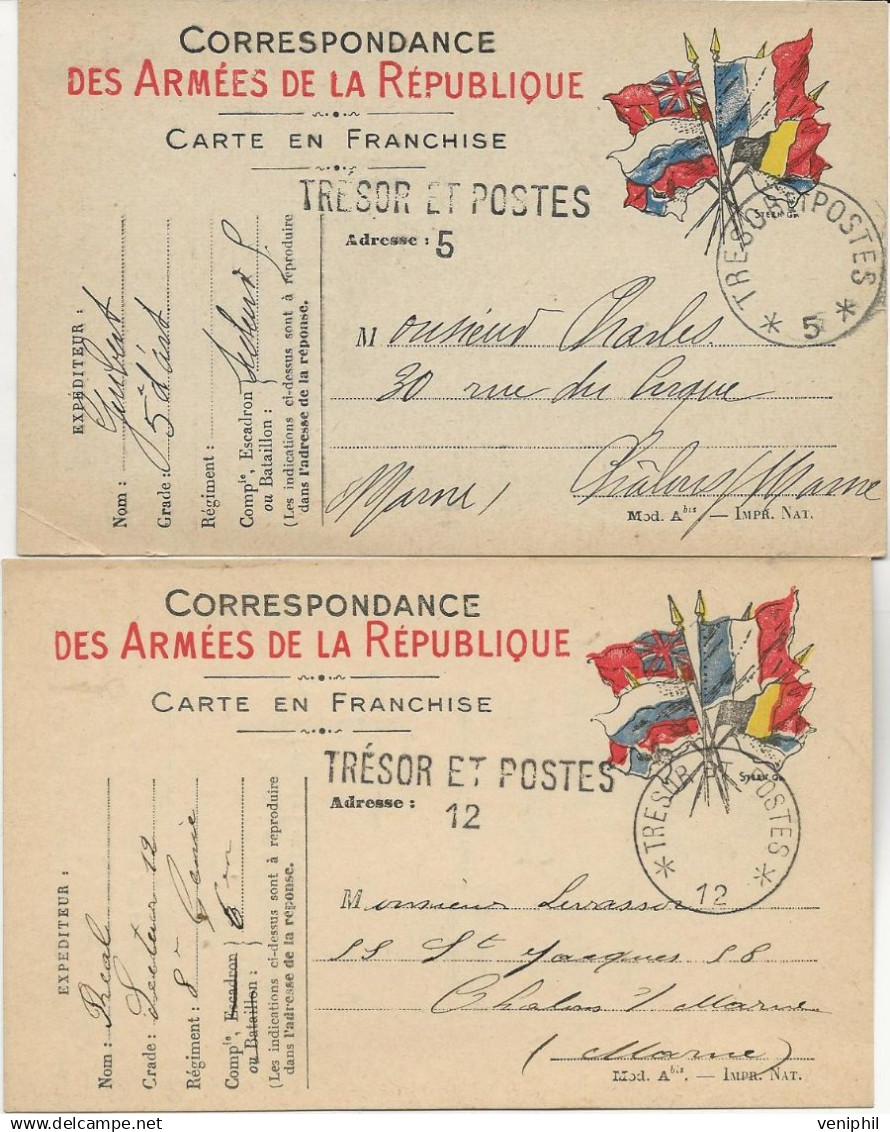 CORRESPONDANCE
DES ARMÉES DE LA RÉPUBLIQUE
CARTE EN FRANCHISE
TRÉSOR ET POSTES
5
Adresse :
STERN GR.
TRESOR ET POSTES
* 5 *
Monsieur Charles
30 rue du Cirque
Châlons s/ Marne
Marne
Mod. A bis — IMPR. NAT.
EXPÉDITEUR :
Nom :
Grade :
Régiment :
Comp ie, Escadron
ou Bataillon :
(Les indications ci-dessus sont à reproduire
dans l'adresse de la réponse.
CORRESPONDANCE
DES ARMÉES DE LA RÉPUBLIQUE
CARTE EN FRANCHISE
TRÉSOR ET POSTES
12
Adresse :
STERN GR.
* TRESOR ET POSTES *
12
Monsieur Levassor
St Jacques 58
Chalons s/ Marne
(Marne)
Mod. A bis. — IMPR. NAT.
EXPÉDITEUR :
Nom :
Grade : Secteur 12
Régiment : 8e Génie
Comp ie, Escadron
ou Bataillon :
(Les indications ci-dessus sont à reproduire
dans l'adresse de la réponse.
veniphil